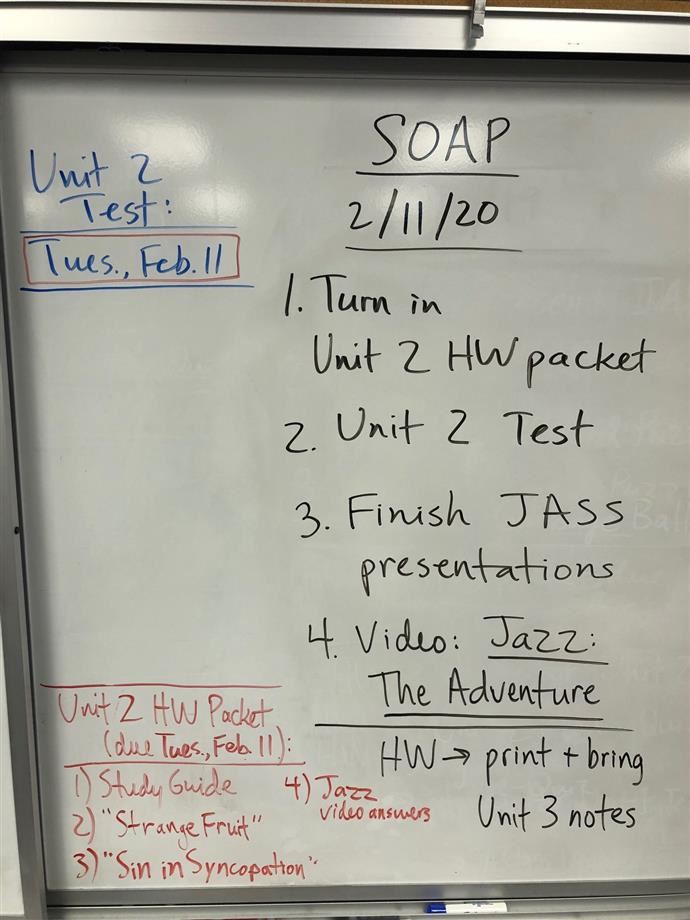 Unit 2
Test:
Tues., Feb. 11
SOAP
2/11/20
1. Turn in
Unit 2 HW packet
2. Unit 2 Test
3. Finish JASS
presentations
4. Video: Jazz:
The Adventure
HW → print + bring
Unit 3 notes
Unit 2 HW Packet
(due Tues., Feb. 11):
1) Study Guide
2) "Strange Fruit"
3) "Sin in Syncopation"
4) Jazz
video answers